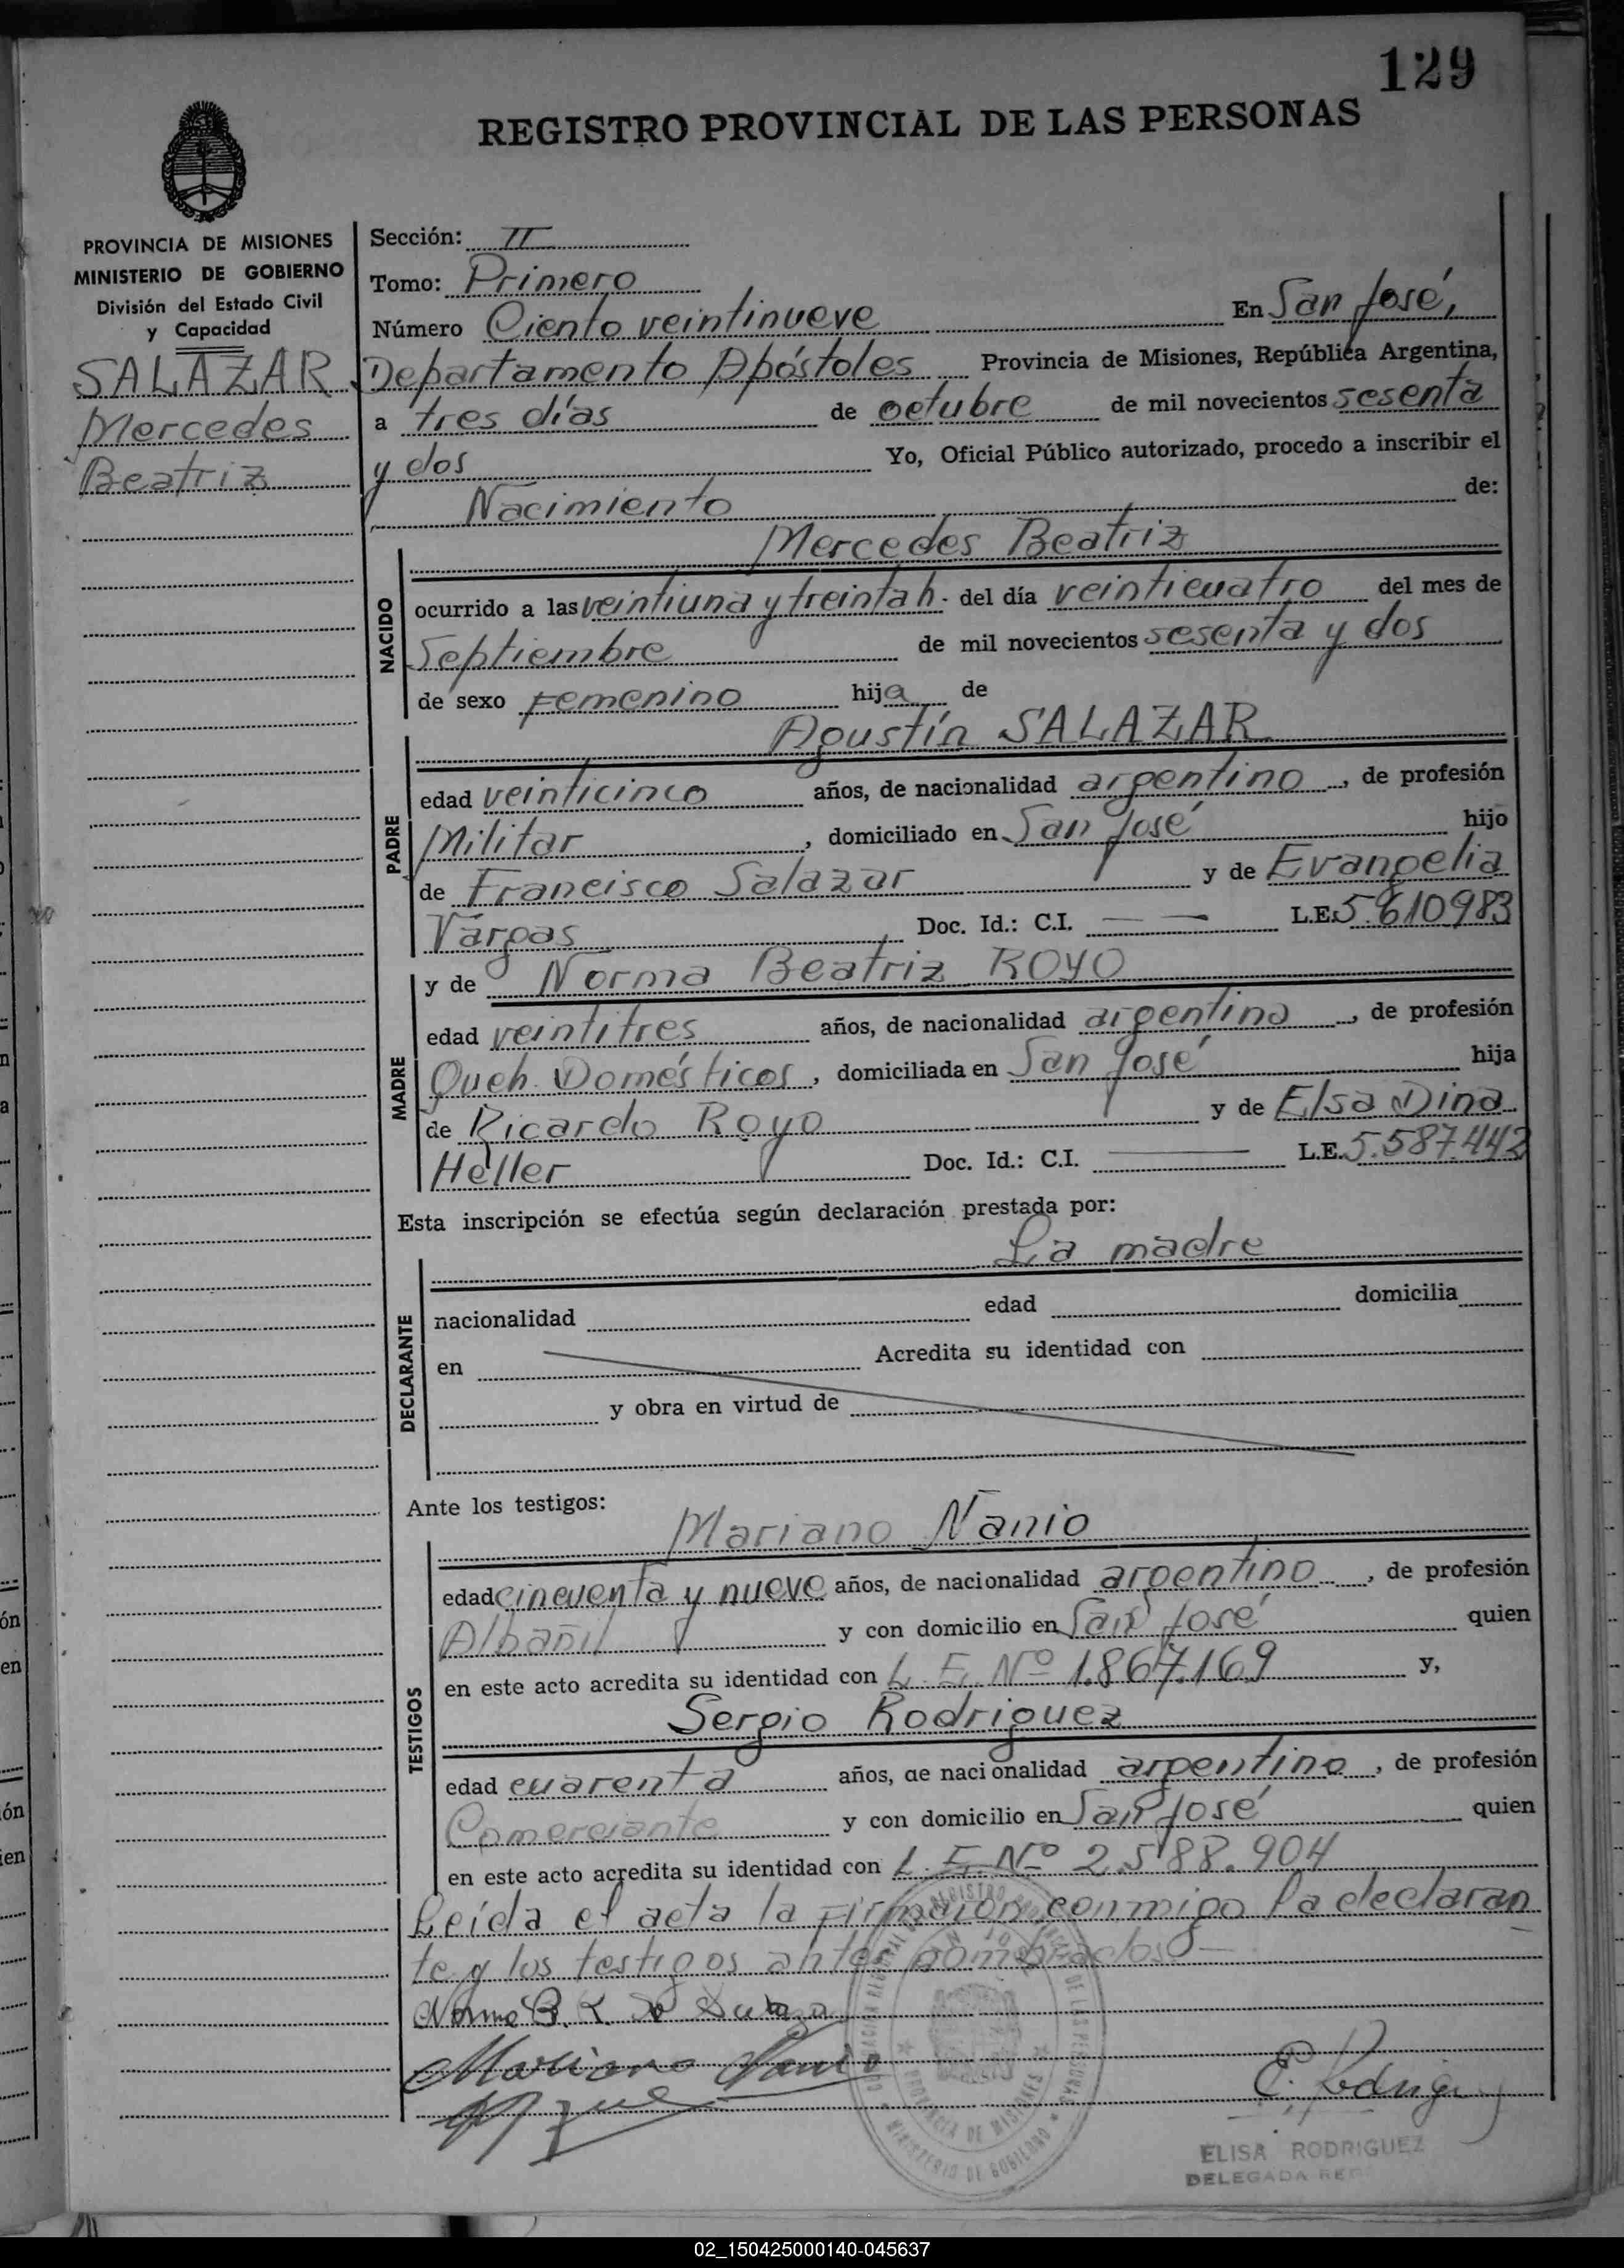 129
REGISTRO PROVINCIAL DE LAS PERSONAS
PROVINCIA DE MISIONES
MINISTERIO DE GOBIERNO
División del Estado Civil
y Capacidad
SALAZAR
Mercedes
Beatriz
Sección: II
Tomo: Primero
Número Ciento veintinueve En San José,
Departamento Apóstoles Provincia de Misiones, República Argentina,
a tres días de octubre de mil novecientos sesenta
y dos Yo, Oficial Público autorizado, procedo a inscribir el
Nacimiento de:
NACIDO
Mercedes Beatriz
ocurrido a las veintiuna y treinta h. del día veinticuatro del mes de
Septiembre de mil novecientos sesenta y dos
de sexo Femenino hija de
PADRE
Agustín SALAZAR
edad veinticinco años, de nacionalidad argentino, de profesión
Militar, domiciliado en San José hijo
de Francisco Salazar y de Evangelia
Vargas Doc. Id.: C.I. — — L.E. 5.610983
MADRE
y de Norma Beatriz ROYO
edad veintitres años, de nacionalidad argentina, de profesión
Queh. Domésticos, domiciliada en San José hija
de Ricardo Royo y de Elsa Dina
Heller Doc. Id.: C.I. — L.E. 5.587.442
Esta inscripción se efectúa según declaración prestada por:
La madre
DECLARANTE
nacionalidad edad domicilia
en Acredita su identidad con
y obra en virtud de
Ante los testigos:
TESTIGOS
Mariano Nanio
edad cincuenta y nueve años, de nacionalidad argentino, de profesión
Albañil y con domicilio en San José quien
en este acto acredita su identidad con L.E. Nº 1.867.169 y,
Sergio Rodriguez
edad cuarenta años, de nacionalidad argentino, de profesión
Comerciante y con domicilio en San José quien
en este acto acredita su identidad con L.E. Nº 2.588.904
Leída el acta la firmaron conmigo la declaran
te y los testigos antes nombrados
Norma B. R. de
Mariano Nanio
E. Rodrigu
PROVINCIA DE MISIONES
MINISTERIO DE GOBIERNO
ELISA RODRIGUEZ
DELEGADA
02_150425000140-045637